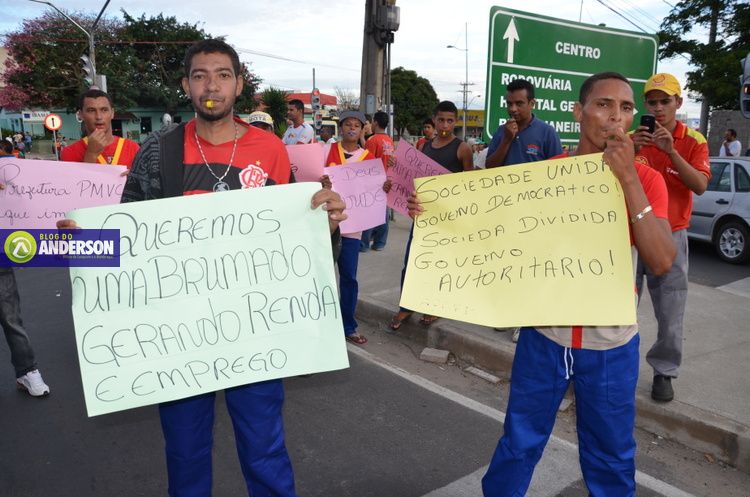 CENTRO
RODOVIÁRIA
HOSPITAL GE
RIO DE JANEIRO
PREFEITURA PMVC
que um
BLOG DO
ANDERSON
QUEREMOS
UMA BRUMADO
GERANDO RENDA
E EMPREGO
DEUS
SOCIEDADE UNIDA
GOVERNO DEMOCRATICO!
SOCIEDA DIVIDIDA
GOVERNO
AUTORITÁRIO!